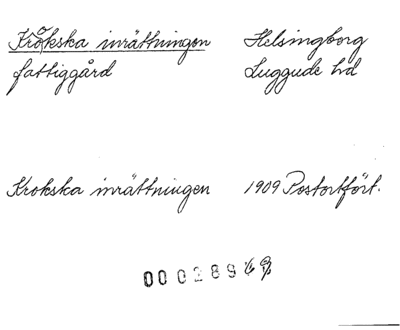 Krokska inrättningen Helsingborg
fattiggård Luggude hd
Krokska inrättningen 1909 Postortfört.